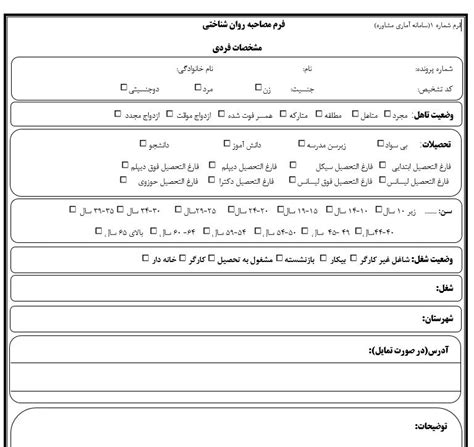 فرم شماره ۱(سامانه آماری مشاوره)
فرم مصاحبه روان شناختی
مشخصات فردی
شماره پرونده: نام: نام خانوادگی:
کد تشخیص: جنسیت: زن□ مرد□ دوجنسیتی□
وضعیت تاهل: مجرد □ متاهل□ مطلقه □ متارکه □ همسر فوت شده □ ازدواج موقت □ ازدواج مجدد □
تحصیلات: بی سواد□ زیرسن مدرسه □ دانش آموز□ دانشجو □
فارغ التحصیل ابتدایی □ فارغ التحصیل سیکل □ فارغ التحصیل دیپلم □ فارغ التحصیل فوق دیپلم □
فارغ التحصیل لیسانس□ فارغ التحصیل فوق لیسانس□ فارغ التحصیل دکترا □ فارغ التحصیل حوزوی □
سن: ..... زیر ۱۰ سال□ ۱۰-۱۴ سال□ ۱۵-۱۹ سال□ ۲۰-۲۴ سال□ ۲۵-۲۹سال□ ۳۰-۳۴ سال □ ۳۵-۳۹ سال □
۴۰-۴۴سال□ ۴۵- ۴۹ سال □ ۵۰-۵۴ سال□ ۵۴-۵۹ سال□ ۶۰ -۶۴ سال□ بالای ۶۵ سال□
وضعیت شغل: شاغل غیر کارگر □ بیکار □ بازنشسته □ مشغول به تحصیل □ کارگر □ خانه دار □
شغل:
شهرستان:
آدرس(در صورت تمایل):
توضیحات: